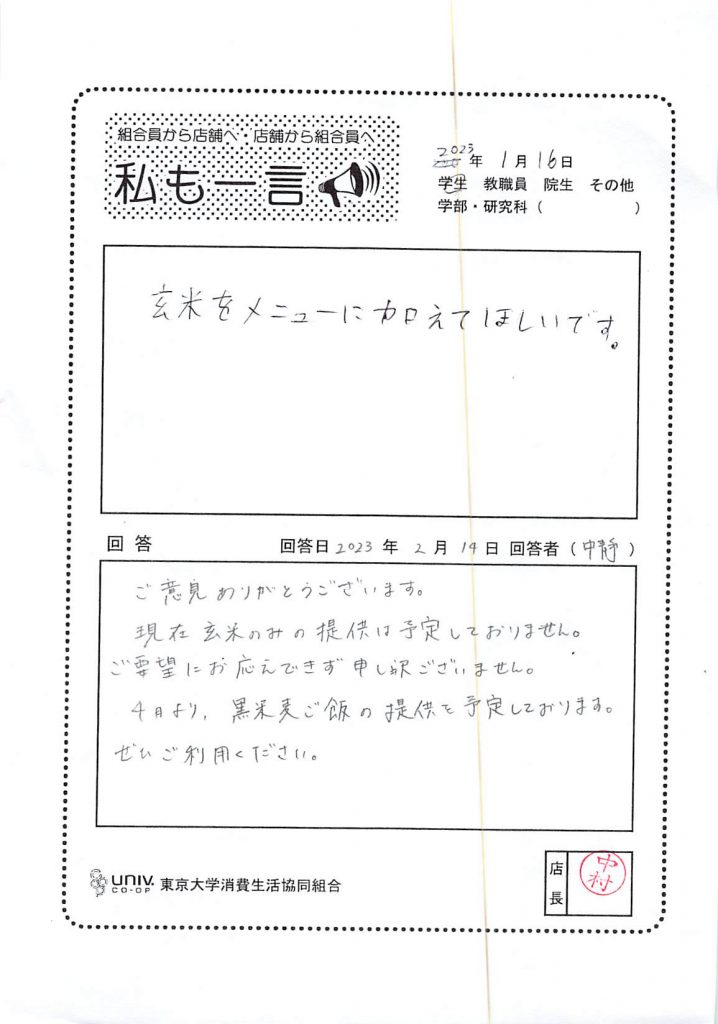 組合員から店舗へ・店舗から組合員へ
私も一言
2023年 1月16日
学生 教職員 院生 その他
学部・研究科（ ）
玄米をメニューに加えてほしいです。
回答 回答日2023年 2月 14日 回答者（中静）
ご意見ありがとうございます。
現在玄米のみの提供は予定しておりません。
ご要望にお応えできず申し訳ございません。
4月より、黒米麦ご飯の提供を予定しております。
ぜひご利用ください。
UNIV. CO-OP 東京大学消費生活協同組合
店長 中村